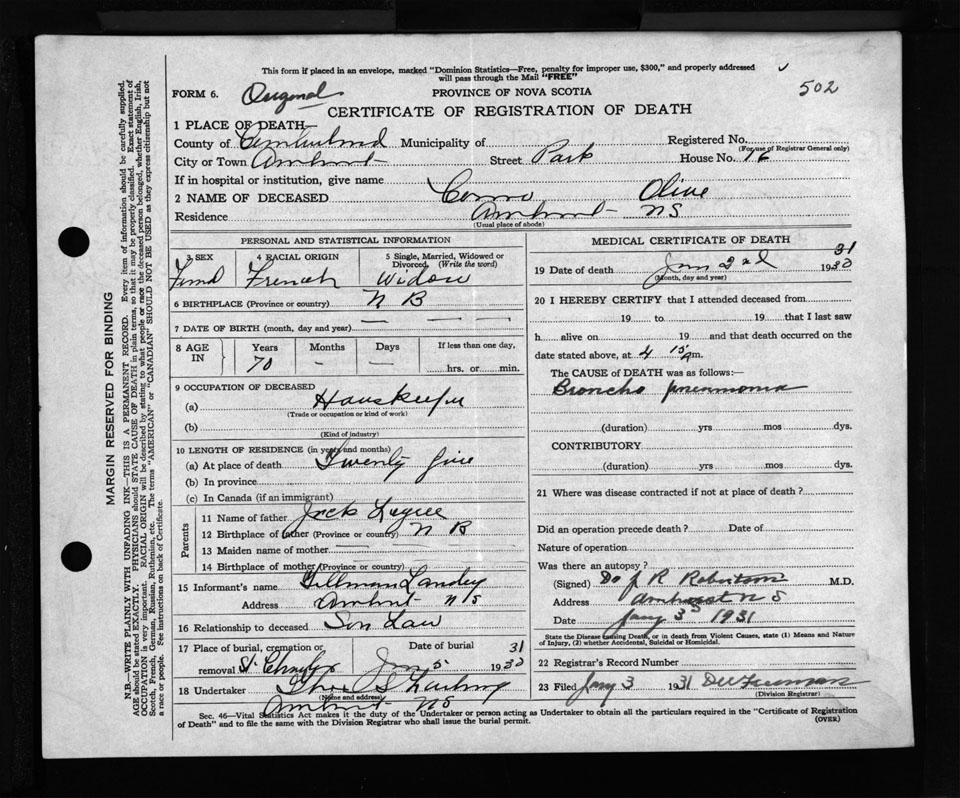 This form if placed in an envelope, marked "Dominion Statistics—Free, penalty for improper use, $300," and properly addressed
will pass through the Mail "FREE"
502
FORM 6. Original PROVINCE OF NOVA SCOTIA
CERTIFICATE OF REGISTRATION OF DEATH
1 PLACE OF DEATH—
County of Cumberland Municipality of Registered No.
(For use of Registrar General only)
City or Town Amherst Street Park House No. 76
If in hospital or institution, give name
2 NAME OF DECEASED Olive
Residence Amherst NS
(Usual place of abode)
PERSONAL AND STATISTICAL INFORMATION
3 SEX 4 RACIAL ORIGIN 5 Single, Married, Widowed or Divorced. (Write the word)
French Widow
6 BIRTHPLACE (Province or country) N B
7 DATE OF BIRTH (month, day and year) — — —
8 AGE IN Years Months Days If less than one day,
70 - - hrs. or min.
9 OCCUPATION OF DECEASED
(a) Houskeeper
(Trade or occupation or kind of work)
(b)
(Kind of industry)
10 LENGTH OF RESIDENCE (in years and months)
(a) At place of death Twenty five
(b) In province
(c) In Canada (if an immigrant)
Parents
11 Name of father Jack
12 Birthplace of father (Province or country) N B
13 Maiden name of mother —
14 Birthplace of mother (Province or country)
15 Informant's name Tillman Landry
Address Amherst NS
16 Relationship to deceased Son Law
17 Place of burial, cremation or removal St Charles Date of burial Jan 5 1930 31
18 Undertaker
(Name and address)
Amherst NS
MEDICAL CERTIFICATE OF DEATH
19 Date of death Jan 2nd 1930 31
(Month, day and year)
20 I HEREBY CERTIFY that I attended deceased from
19 to 19 that I last saw
h alive on 19 and that death occurred on the
date stated above, at 4 15 m.
The CAUSE of DEATH was as follows:—
Broncho pneumonia
(duration) yrs mos dys.
CONTRIBUTORY
(duration) yrs mos dys.
21 Where was disease contracted if not at place of death?
Did an operation precede death? Date of
Nature of operation
Was there an autopsy?
(Signed) J R Robertson M.D.
Address Amherst N S
Date Jany 3 1931
State the Disease causing Death, or in death from Violent Causes, state (1) Means and Nature
of Injury, (2) whether Accidental, Suicidal or Homicidal.
22 Registrar's Record Number
23 Filed Jany 3 1931 Freeman
(Division Registrar)
Sec. 46—Vital Statistics Act makes it the duty of the Undertaker or person acting as Undertaker to obtain all the particulars required in the "Certificate of Registration
of Death" and to file the same with the Division Registrar who shall issue the burial permit. (OVER)
MARGIN RESERVED FOR BINDING
N.B.—WRITE PLAINLY WITH UNFADING INK—THIS IS A PERMANENT RECORD. Every item of information should be carefully supplied.
AGE should be stated EXACTLY. PHYSICIANS should STATE CAUSE OF DEATH in plain terms, so that it may be properly classified. Exact statement of
OCCUPATION is very important. RACIAL ORIGIN will be described by stating to what people or race the deceased person belonged, whether English, Irish,
Scotch, French, German, Russian, Ruthenian, etc. The terms "AMERICAN" or "CANADIAN" SHOULD NOT BE USED as they express citizenship but not
a race or people. See instructions on back of Certificate.